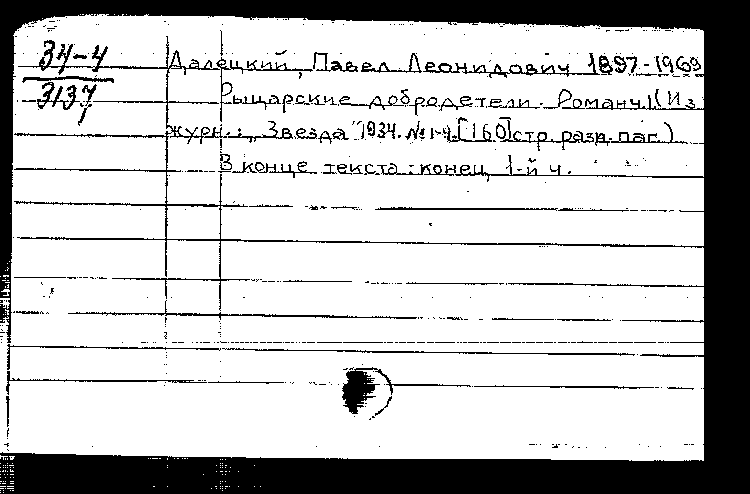 34-4
3137
Далецкий, Павел Леонидович 1897-1969
Рыцарские добродетели. Роман ч.1 (Из
журн.: „Звезда" 1934. №1-4. [160] стр. разн. паг.)
В конце текста: конец 1-й ч.